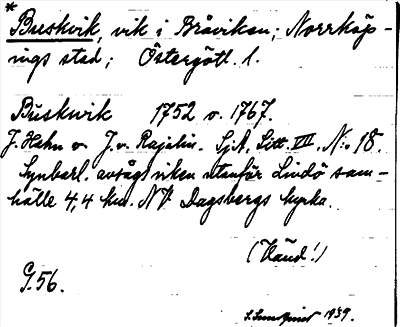 * Buskvik, vik i Bråviken; Norrköp-
ings stad; Östergötl. l.
Buskwik 1752 o. 1767.
J. Hahn o J. v. Rajalin. SjA, Litt. VII, N:o 18.
Synbarl. avsågs viken utanför Lindö sam-
hälle 4,4 km. NV Dagsbergs kyrka.
(Vänd!)
G.56.
1939.